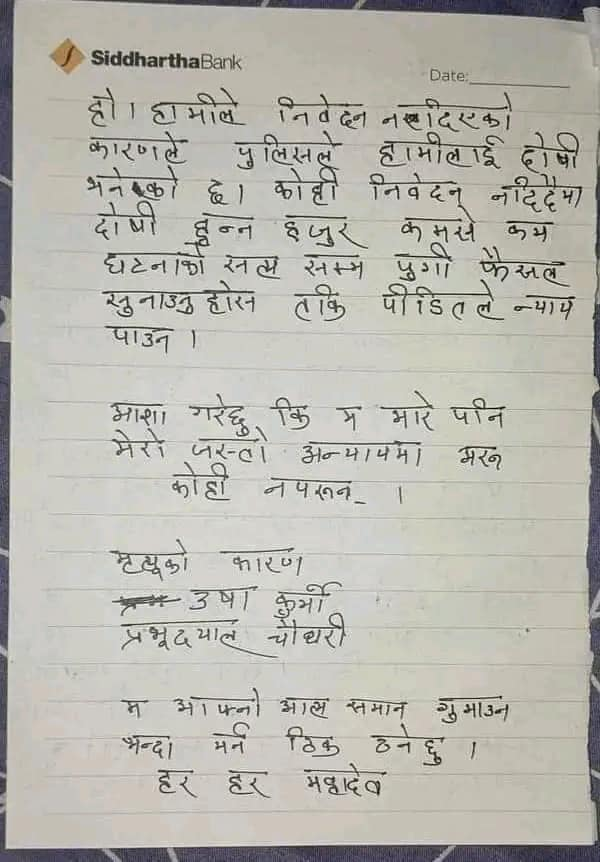 SiddharthaBank
Date:
हो। हामीले निवेदन नदिएको
कारणले पुलिसले हामीलाई दोषी
भनेको छ। कोही निवेदन् नदिदैमा
दोषी हुन्न हजुर कमसे कम
घटनाको सत्य सम्म पुगी फैसल
सुनाउनु होस तकि पीडितले न्याय
पाउन ।
आशा गरेछु कि म मारे पनि
मेरो जस्तो अन्यायमा मरन
कोही नपरून ।
मृत्यूको कारण
उषा कुर्मी
प्रभूदयाल चौधरी
म आफ्नो आत्म समान गुमाउन
भन्दा मर्न ठिक ठनेछु ।
हर हर महादेव